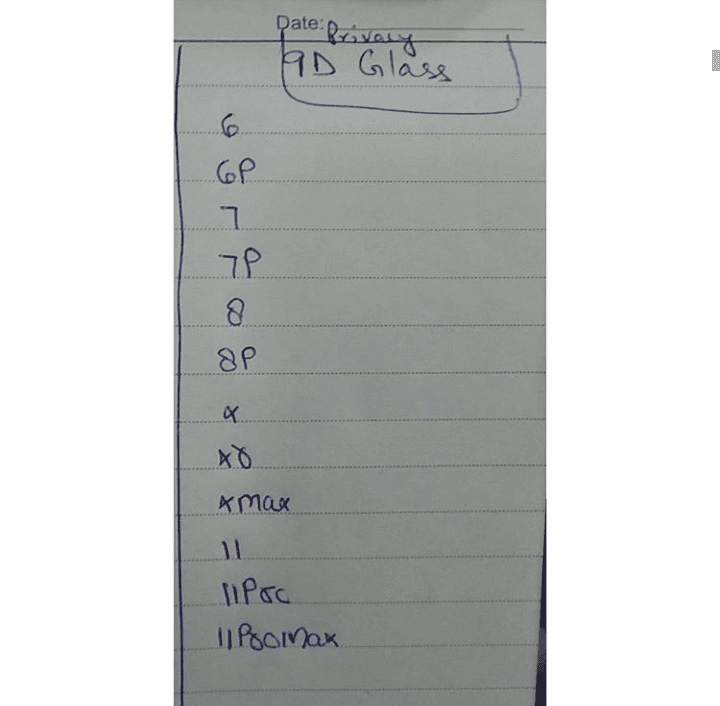 Date: Privacy
9D Glass
6
6P
7
7P
8
8P
x
xr
xmax
11
11Pro
11Promax